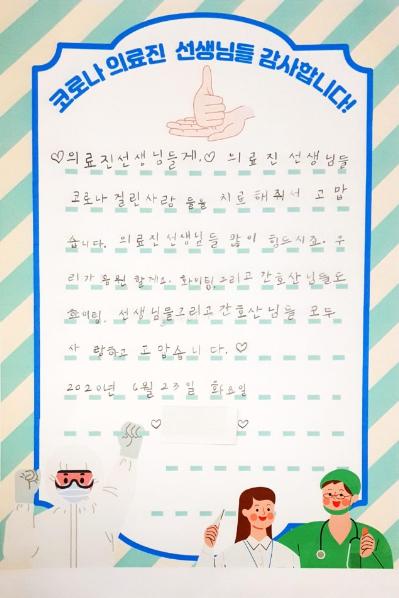 코로나 의료진 선생님들 감사합니다!
♡의료진선생님들게.♡ 의료진 선생님들
코로나 걸린사람 들을 치료해줘서 고맙
습니다. 의료진선생님들 많이 힘드시죠. 우
리가 응원 할게요. 화이팅, 그리고 간호산님들도
화이팅. 선생님들그리고간호산님들 모두
사랑하고 고맙습니다.♡
2020년 6월 23일 화요일
♡ ♡